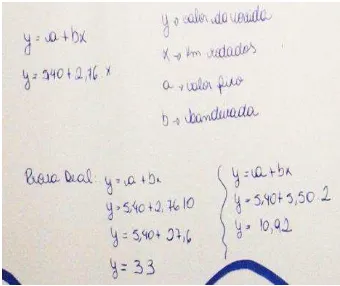 y = a + bx
y = 5,40 + 2,76 x
y → valor da corrida
x → km rodados
a → valor fixo
b → bandeirada
Prova Real: y = a + bx
y = 5,40 + 2,76 10
y = 5,40 + 27,6
y = 33
y = a + bx
y = 5,40 + 5,50 . 2
y = 10,92